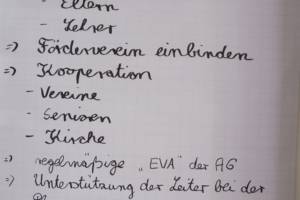 - Eltern
- Lehrer
=> Förderverein einbinden
=> Kooperation
- Vereine
- Senioren
- Kirche
=> regelmäßige „EVA" der AG
=> Unterstützung der Leiter bei der